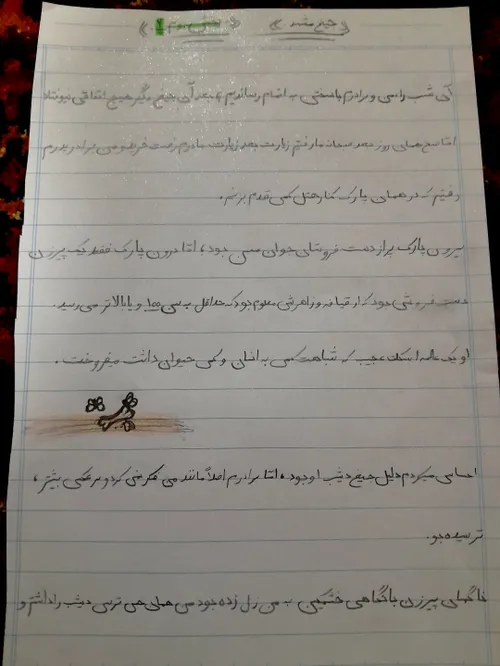 《 جیغ مشهد 》 《 بخش سوم 》
آن شب را من و برادرم با سختی به اتمام رساندیم، بعد آن جیغ دیگر هیچ اتفاقی نیوفتاد
اما صبح همان روز بعد صبحانه رفتیم زیارت بعد زیارت مادرم رفت خرید و من برادر و پدرم
رفتیم که در همان پارک کنار هتل کمی قدم بزنیم.
بیرون پارک پر از دست فروشای جوان مسن بود، اما درون پارک فقط یک پیرزن
دست فروشی بود که از قیافه و ظاهرش معلوم بود که حداقل به سن ۱۰۰ و یا بالاتر می رسید.
او یک عالمه اسکلت عجیب که شباهت کمی به انسان و کمی حیوان داشت میفروخت.
احساس میکردم دلیل جیغ دیشب او بود، اما برادرم اصلاً مانند من فکر نمی کرد و برعکس بیشتر،
ترسیده بود.
ناگهان پیرزن با نگاهی خشمگین به من زل زده بود من همان حس ترس دیشب را داشتم و